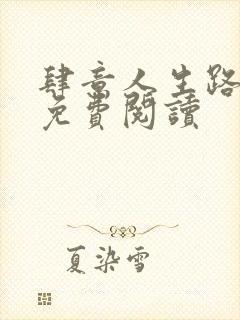 肆意人生路
免費閱讀
夏染雪